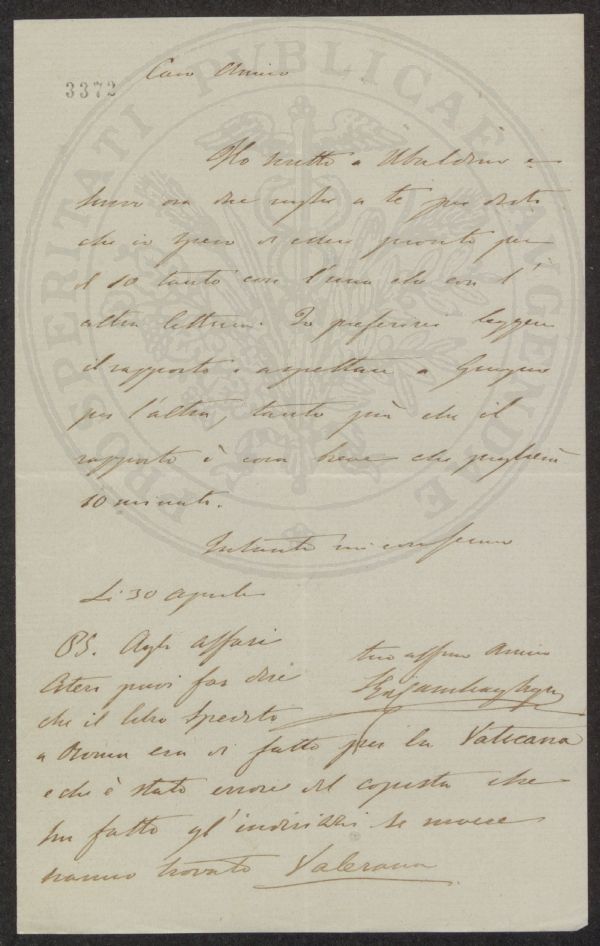 3372
PROSPERITATI PUBLICAE AUGENDAE
Caro Amico
Ho scritto a Ubaldino e
ora due righe a te per dirti
che io spero di essere pronto per
il 10 tanto con l'una che con l'
altra lettura. Io preferirei leggere
il rapporto e aspettare a Giugno
per l'altra, tanto più che il
rapporto è cosa breve che piglierà
10 minuti.
Intanto mi confermo
Li 30 aprile
tuo affmo Amico
PS. Agli affari
Esteri puoi far dire
che il libro spedito
a Roma era di fatto per la Vaticana
e che è stato errore del copista che
ha fatto gl'indirizzi se invece
hanno trovato Valerana